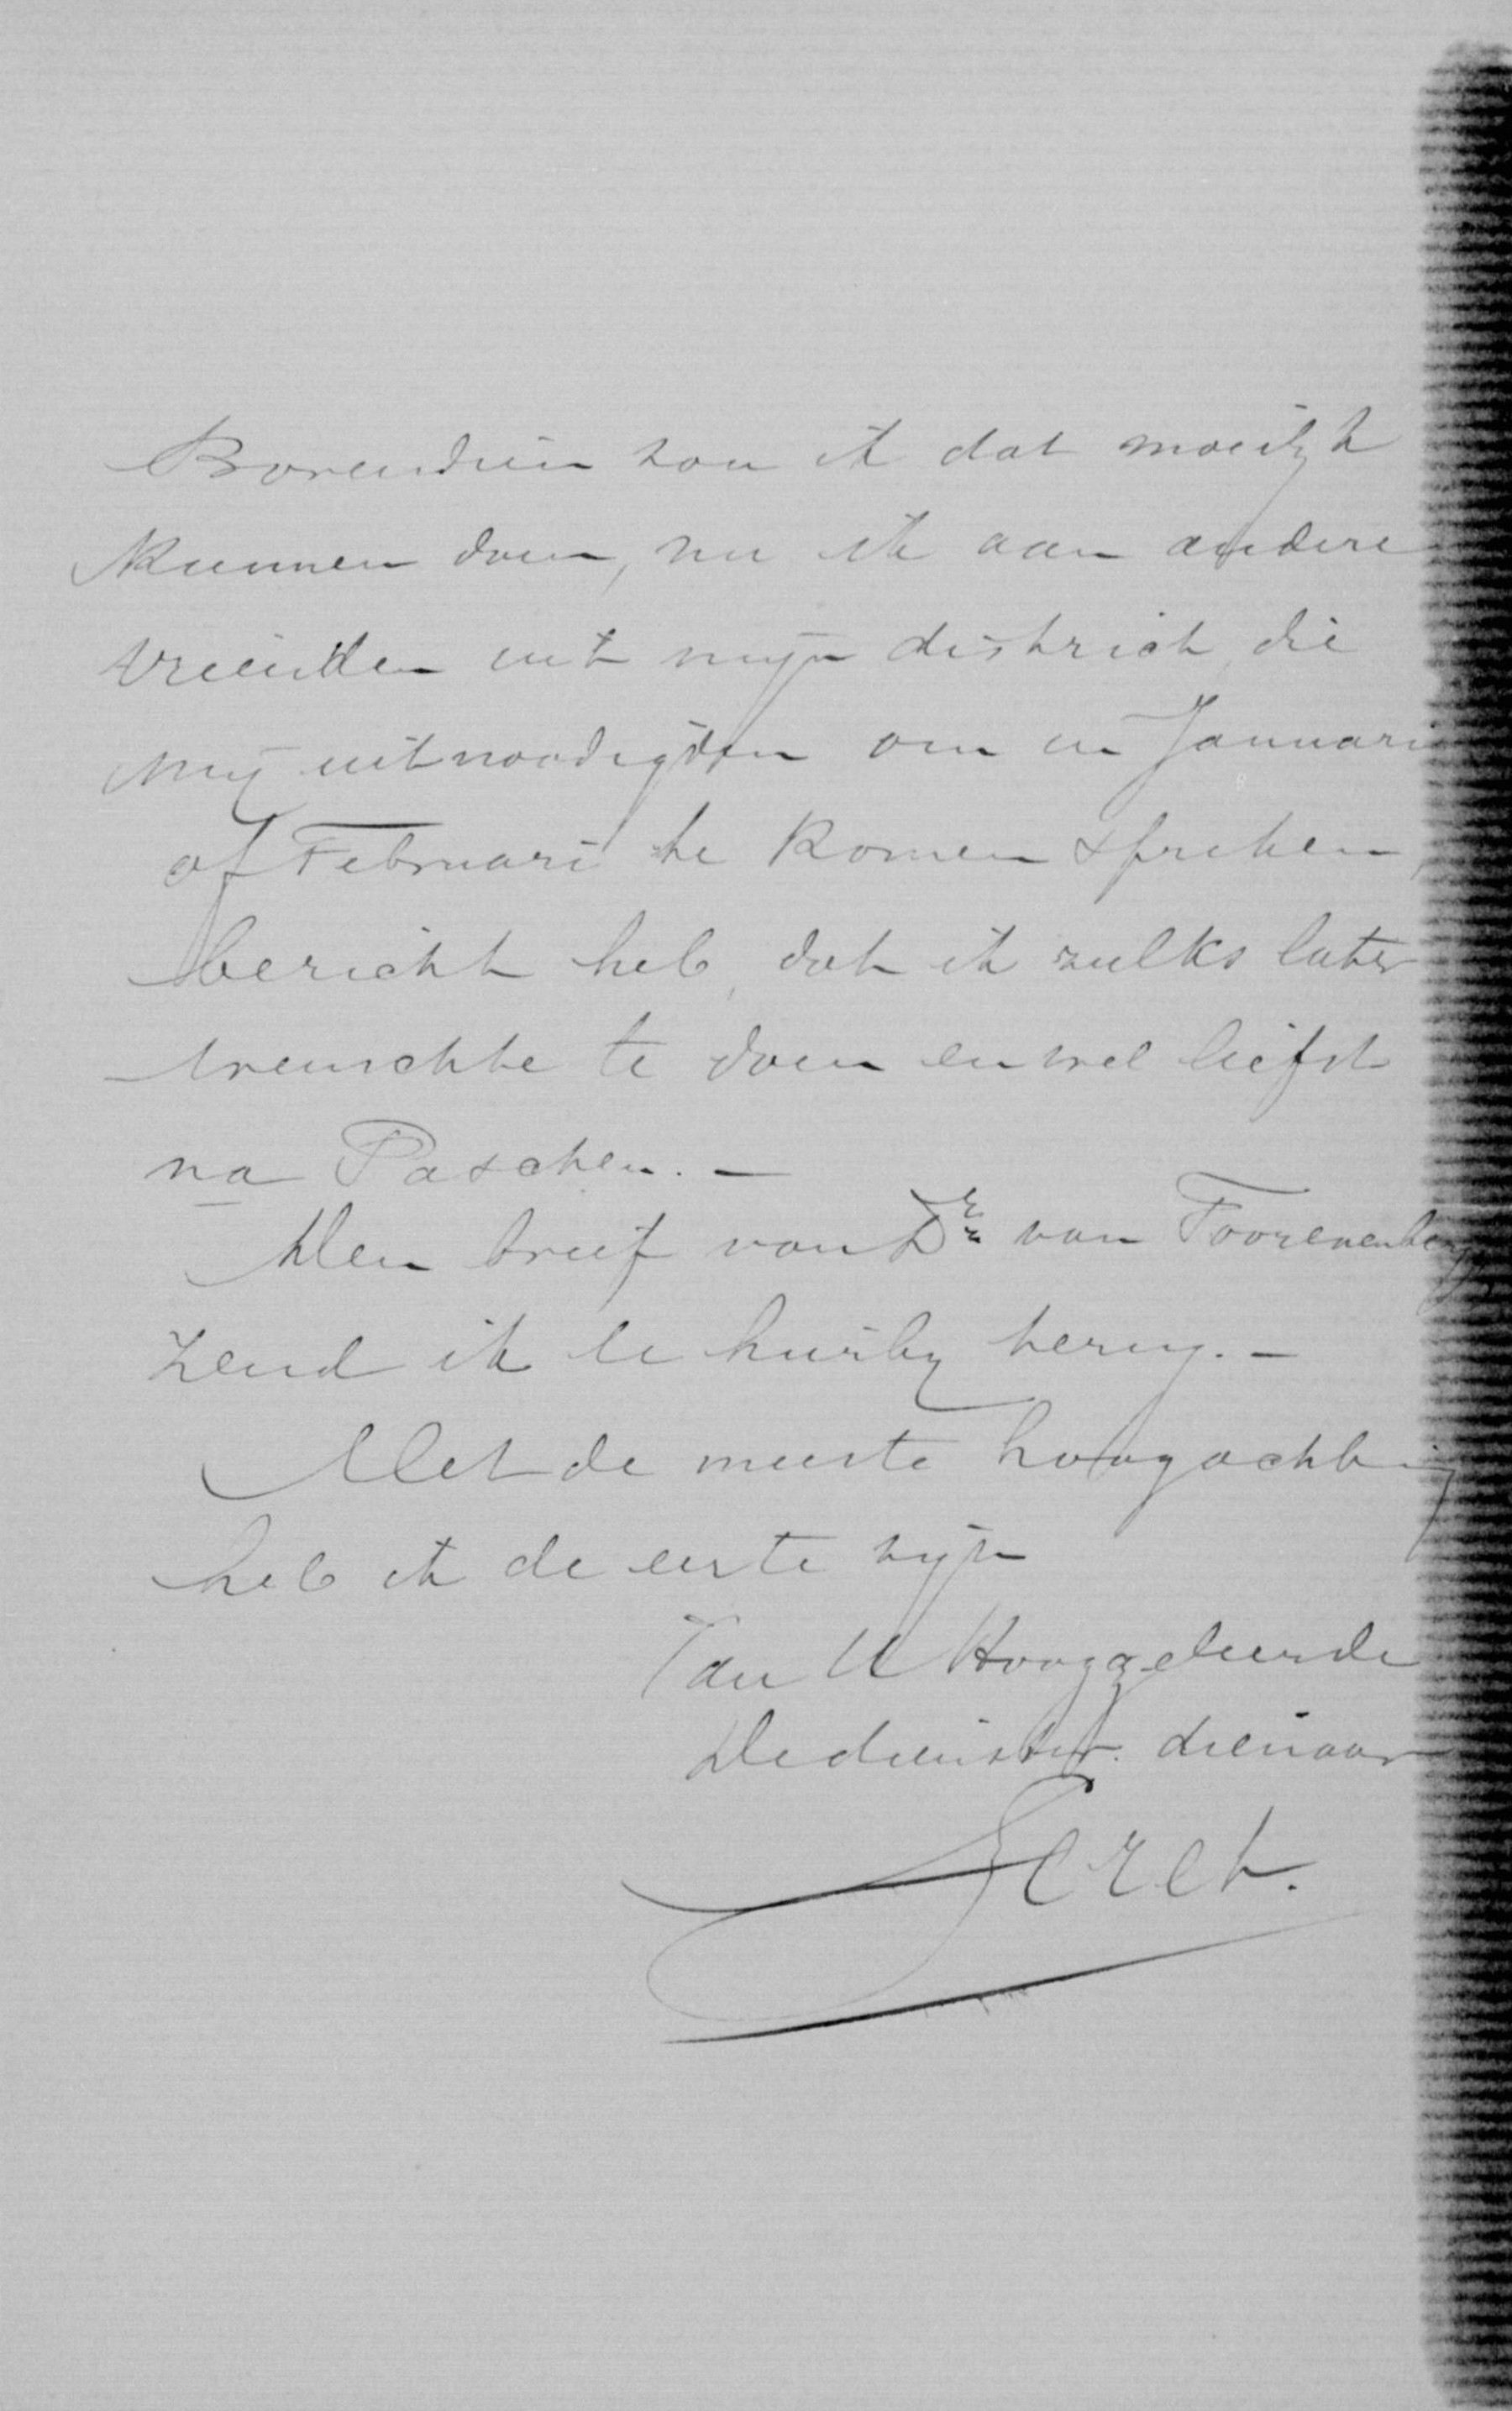 Bovendien zou ik dat moeilijk
kunnen doen, nu ik aan andere
vrienden uit mijn district, die
mij uitnoodigden om in Januari
of Februari te komen spreken,
bericht heb, dat ik zulks later
wenschte te doen en wel liefst
na Paschen. —
Den brief van Dr van Toorenenbergen
zend ik U hierbij terug. —
Met de meeste hoogachting
heb ik de eer te zijn
Van U Hooggeleerde
De dienstw. dienaar
Seret.